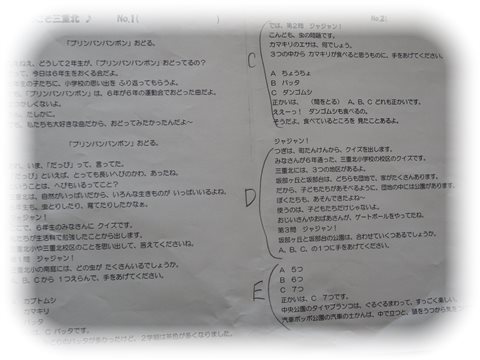 三重北 ♪ No.1(
「ブリンバンバンボン」おどる。
ねえ、どうして2年生が、「ブリンバンバンボン」おどってるの?
って、今日は6年生をおくる会だよ。
生の子たちに、小学校の思い出を ふり返ってもらうよ。
「ブリンバンバンボン」は、6年が6年の運動会でおどった曲だよ。
かしくないよ。
、たしかに。
、私たちも大好きな曲だから、おどってみたかったんだよ〜
「ブリンバンバンボン」おどる。
、いま、「だっぴ」って、言ってた。
「だっぴ」といえば、とっても長いへびのかわ、あったね。
いうことは、へびもいるってこと?
北は、自然がいっぱいだから、いろんな生きものが いっぱいいるよね。
も、虫とりしたり、育てたりしたかなぁ。
ジャン!
で、6年生のみなさんに クイズです。
たちが生活科で勉強したことから出します。
小や三重北校区のことを思い出して、答えてくださいね。
1問 ジャジャン!
小の南庭には、どの虫が たくさんいるでしょうか。
、B、Cから 1つえらんで、手をあげてください。
カブトムシ
カマキリ
バッタ
C バッタです。
No.2(
C
では、第2問 ジャジャン!
こんども、虫の問題です。
カマキリのエサは、何でしょう。
3つの中から カマキリが食べると思うものに、手をあげてください。
A ちょうちょ
B バッタ
C ダンゴムシ
正かいは、 (間をとる) A、B、C どれも正かいです。
ええーっ! ダンゴムシも食べるの。
そうだよ。食べているところを 見たことあるよ。
D
ジャジャン!
つぎは、町たんけんから、クイズを出します。
みなさんが6年通った、三重北小学校の校区のクイズです。
三重北には、3つの地区があるよ。
坂部ヶ丘と坂部台は、どちらも団地で、家がたくさんあります。
だから、子どもたちがあそべるように、団地の中には公園があります。
ぼくたちも、あそんできたよね〜
使うのは、子どもたちだけじゃないよ。
おじいさんやおばあさんが、ゲートボールをやってたね。
第3問 ジャジャン!
坂部ヶ丘と坂部台の公園は、合わせていくつあるでしょうか。
A、B、C、の1つに手をあげてください。
E
A 5つ
B 6つ
C 7つ
正かいは、C 7つです。
中央公園のタイヤブランコは、ぐるぐるまわって、すっごく楽しい
汽車ポッポ公園の汽車の土かんは、中で立つと、頭をうつから気をつ